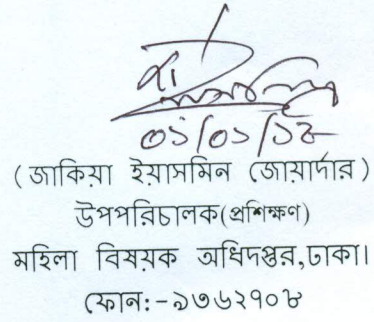 ০১/০১/১৮
( জাকিয়া ইয়াসমিন জোয়ার্দার )
উপপরিচালক(প্রশিক্ষণ)
মহিলা বিষয়ক অধিদপ্তর,ঢাকা।
ফোন:-৯৩৬২৭০৮